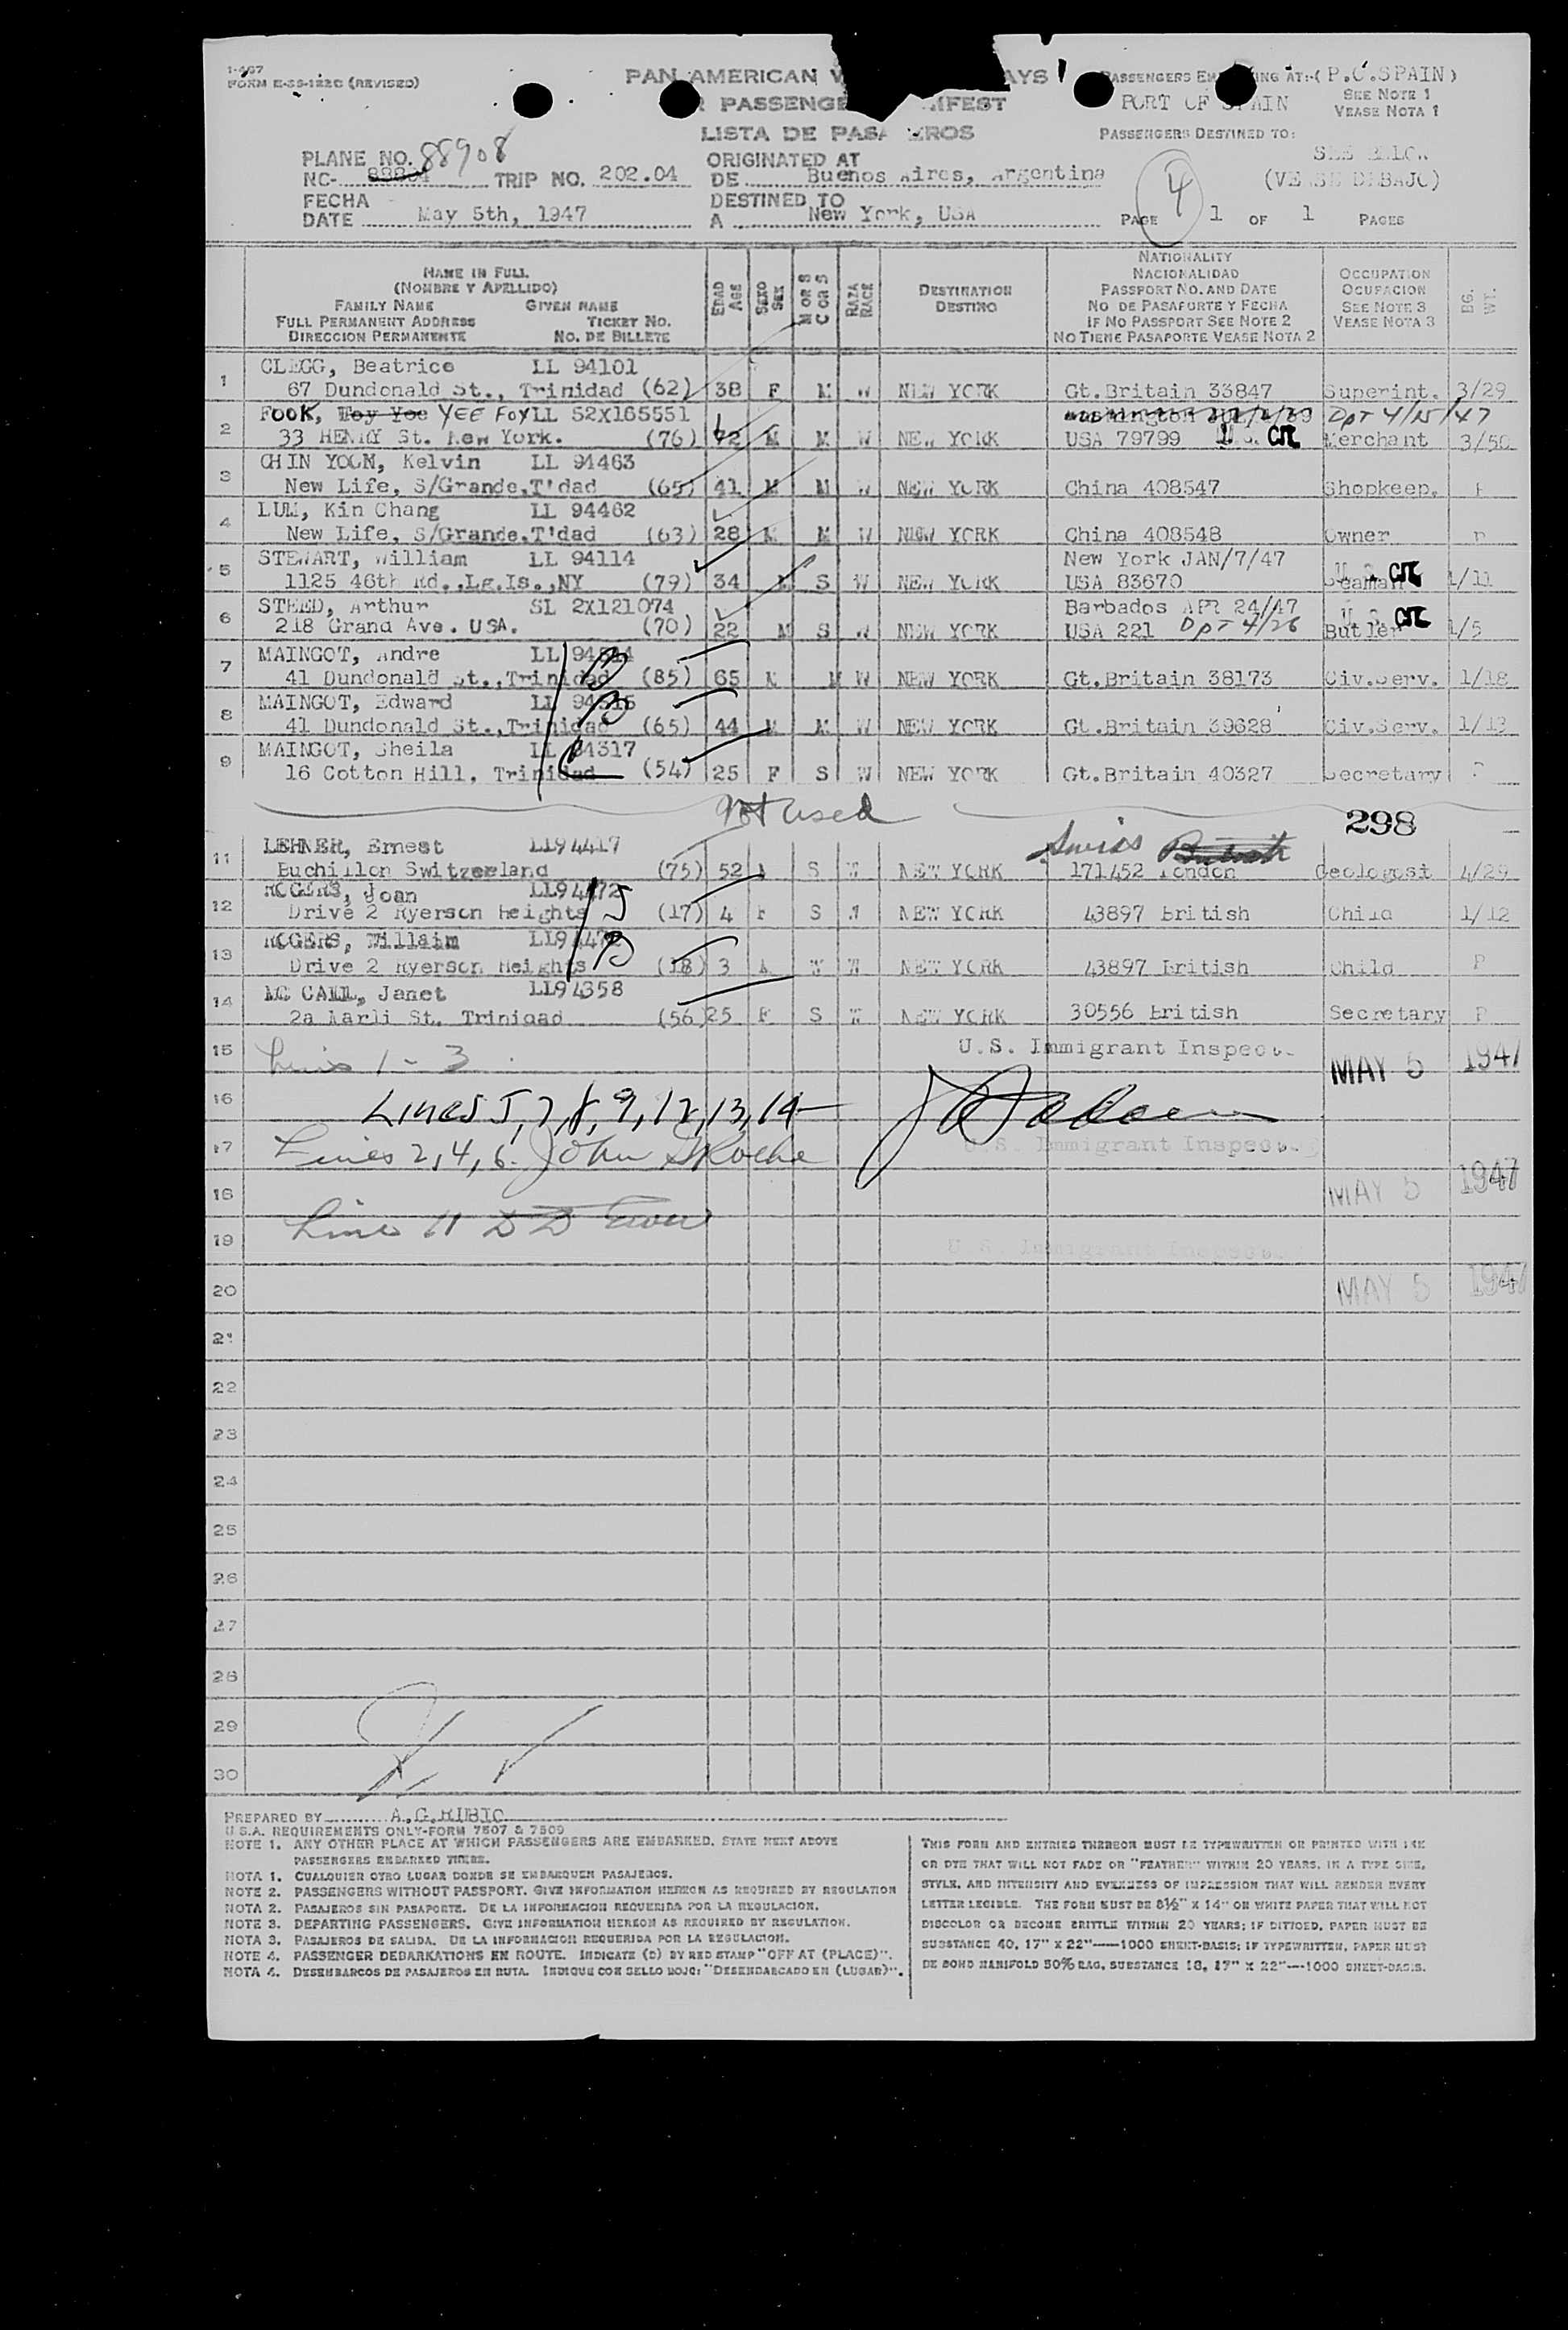 1-467
FORM E-SS-122C (REVISED)
PAN AMERICAN W AYS
PASSENGE IFEST
LISTA DE PASA EROS
PASSENGERS EM ING AT:-( P.O.SPAIN )
PORT OF SPAIN
SEE NOTE 1
VEASE NOTA 1
PASSENGERS DESTINED TO:
SEE BELOW
(VEASE DEBAJO)
PLANE NO. 88908
NC- TRIP NO. 202.04
ORIGINATED AT
DE Buenos Aires, Argentina
FECHA
DATE May 5th, 1947
DESTINED TO
A New York, USA
4
PAGE 1 OF 1 PAGES
NAME IN FULL
(NOMBRE Y APELLIDO)
FAMILY NAME GIVEN NAME
FULL PERMANENT ADDRESS TICKET NO.
DIRECCION PERMANENTE NO. DE BILLETE
EDAD AGE
SEXO SEX
M OR S C OR S
RAZA RACE
DESTINATION
DESTINO
NATIONALITY
NACIONALIDAD
PASSPORT NO. AND DATE
NO DE PASAPORTE Y FECHA
IF NO PASSPORT SEE NOTE 2
NO TIENE PASAPORTE VEASE NOTA 2
OCCUPATION
OCUPACION
SEE NOTE 3
VEASE NOTA 3
BG. WT.
CLEGG, Beatrice LL 94101
1 67 Dundonald St., Trinidad (62) 38 F M W NEW YORK Gt.Britain 33847 Superint. 3/29
FOOK, Toy Yee YEE FOY LL 52X165551 Dpt 4/15/47
2 33 HENRY St. New York. (76) 72 M M W NEW YORK USA 79799 U.S. CIT. Merchant 3/50
CHIN YOOM, Kelvin LL 94463
3 New Life, S/Grande,T'dad (65) 41 M M W NEW YORK China 408547 Shopkeep.
LUM, Kin Chang LL 94462
4 New Life, S/Grande,T'dad (63) 28 M M W NEW YORK China 408548 Owner
STEWART, William LL 94114 New York JAN/7/47
5 1125 46th Rd.,Lg.Is.,NY (79) 34 S W NEW YORK USA 83670 Seaman U.S. CIT. 1/11
STEED, Arthur SL 2X121074 Barbados APR 24/47
6 218 Grand Ave. USA. (70) 22 M S W NEW YORK USA 221 Dpt 4/26 Butler U.S. CIT. 1/5
MAINGOT, Andre LL
7 41 Dundonald St.,Trinidad (85) 65 M M W NEW YORK Gt.Britain 38173 Civ.Serv. 1/18
MAINGOT, Edward LL
8 41 Dundonald St.,Trinidad (65) 44 M M W NEW YORK Gt.Britain 39628 Civ.Serv. 1/13
MAINGOT, Sheila LL 94317
9 16 Cotton Hill, Trinidad (54) 25 F S W NEW YORK Gt.Britain 40327 Secretary
Not used
298
LEHNER, Ernest LL94417 Swiss British
11 Buchillon Switzeeland (75) 52 S W NEW YORK 171452 London Geologost 4/29
ROGERS, Joan LL94472
12 Drive 2 Ryerson Heights (17) 4 F S W NEW YORK 43897 British Child 1/12
ROGERS, Willaim LL94472
13 Drive 2 Ryerson Heights (18) 3 W NEW YORK 43897 British Child P
MC CALL, Janet LL94358
14 2a Marli St. Trinidad (56)25 F S W NEW YORK 30556 British Secretary P
15 Lines 1 - 3 U.S. Immigrant Inspector MAY 5 1947
16 Lines 5,7,8,9,12,13,14
17 Lines 2,4,6. John S Roche U.S. Immigrant Inspector
18 MAY 5 1947
Line 11 D D
19 U.S. Immigrant Inspector
20 MAY 5 1947
21
22
23
24
25
26
27
28
29
30
PREPARED BY A.G.RIBIC
U.S.A. REQUIREMENTS ONLY-FORM 7507 & 7509
NOTE 1. ANY OTHER PLACE AT WHICH PASSENGERS ARE EMBARKED, STATE NEXT ABOVE
PASSENGERS EMBARKED THERE.
NOTA 1. CUALQUIER OTRO LUGAR DONDE SE EMBARQUEN PASAJEROS.
NOTE 2. PASSENGERS WITHOUT PASSPORT. GIVE INFORMATION HEREON AS REQUIRED BY REGULATION
NOTA 2. PASAJEROS SIN PASAPORTE. DE LA INFORMACION REQUERIDA POR LA REGULACION.
NOTE 3. DEPARTING PASSENGERS. GIVE INFORMATION HEREON AS REQUIRED BY REGULATION.
NOTA 3. PASAJEROS DE SALIDA. DE LA INFORMACION REQUERIDA POR LA REGULACION.
NOTE 4. PASSENGER DEBARKATIONS EN ROUTE. INDICATE (D) BY RED STAMP "OFF AT (PLACE)".
NOTA 4. DESEMBARCOS DE PASAJEROS EN RUTA. INDIQUE CON SELLO ROJO: "DESEMBARCADO EN (LUGAR)".
THIS FORM AND ENTRIES THEREON MUST BE TYPEWRITTEN OR PRINTED WITH INK
OR DYE THAT WILL NOT FADE OR "FEATHER" WITHIN 20 YEARS, IN A TYPE SIZE,
STYLE, AND INTENSITY AND EVENNESS OF IMPRESSION THAT WILL RENDER EVERY
LETTER LEGIBLE. THE FORM MUST BE 8½" X 14" ON WHITE PAPER THAT WILL NOT
DISCOLOR OR BECOME BRITTLE WITHIN 20 YEARS; IF DITTOED, PAPER MUST BE
SUBSTANCE 40, 17" X 22"——1000 SHEET-BASIS; IF TYPEWRITTEN, PAPER MUST
BE BOND MANIFOLD 50% RAG, SUBSTANCE 18, 17" X 22"—-1000 SHEET-BASIS.